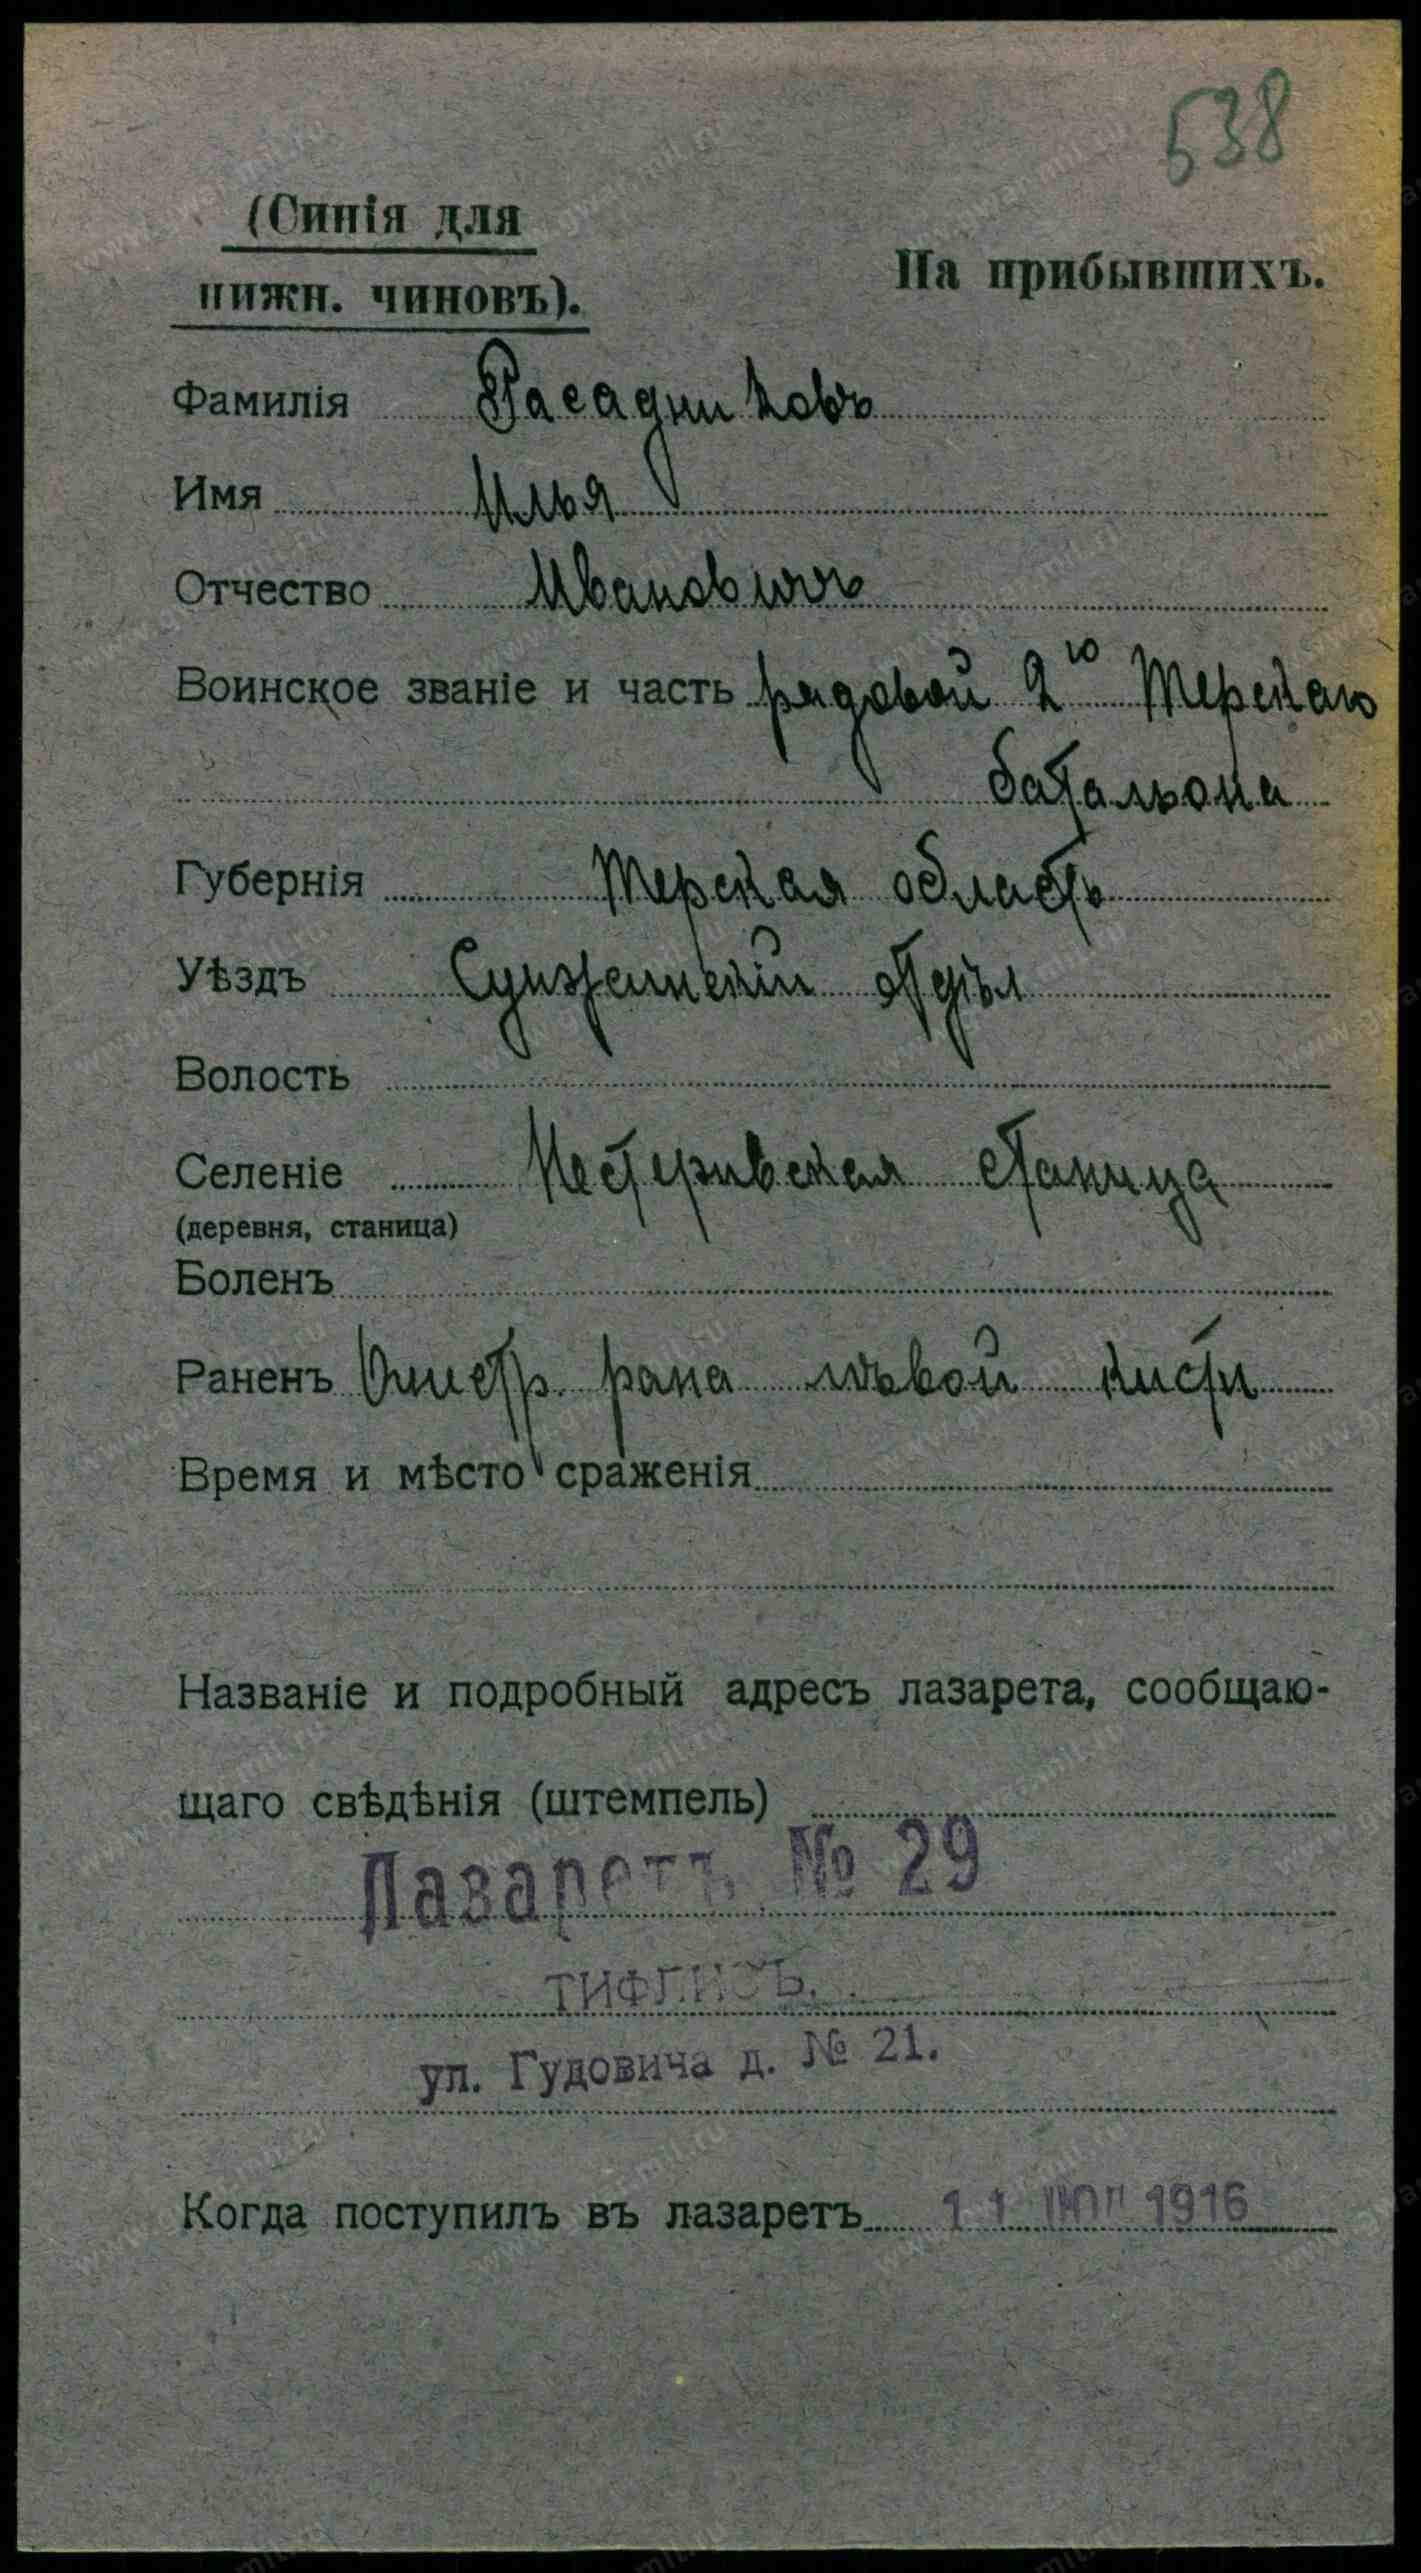 538
(Синія для
нижн. чиновъ).
На прибывшихъ.
Фамилія Расадниковъ
Имя Илья
Отчество Ивановичъ
Воинское званіе и часть рядовой 2го Терскаго
батальона
Губернія Терская область
Уѣздъ Сунженскій отдѣл
Волость
Селеніе Нестеривская станица
(деревня, станица)
Боленъ
Раненъ Огнестр. рана лѣвой кисти
Время и мѣсто сраженія
Названіе и подробный адресъ лазарета, сообщаю-
щаго свѣдѣнія (штемпель)
Лазаретъ № 29
ТИФЛИСЪ.
ул. Гудовича д. № 21.
Когда поступилъ въ лазаретъ 11 ІЮЛ 1916